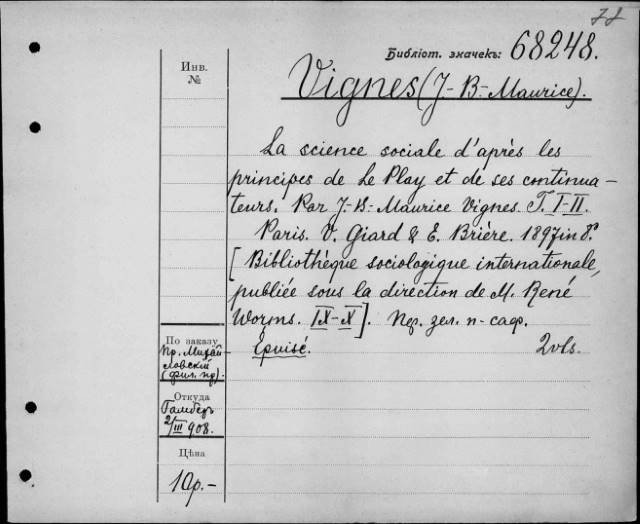 78
Библіот. значекъ: 68248.
Инв.
№
Vignes (J-B-Maurice).
La science sociale d'après les
principes de Le Play et de ses continua-
teurs. Par J-B-Maurice Vignes. T. I-II.
Paris. V. Giard & E. Brière. 1897 in 8.°
[Bibliothèque sociologique internationale,
publiée sous la direction de M. René
Worms. IX-X]. Пер. зел. п-саф.
Épuisé. 2 vls.
По заказу
Пр. Михай-
ловскій
(фил. пр).
Откуда
Гамберъ
2/III 908.
Цѣна
10р.-